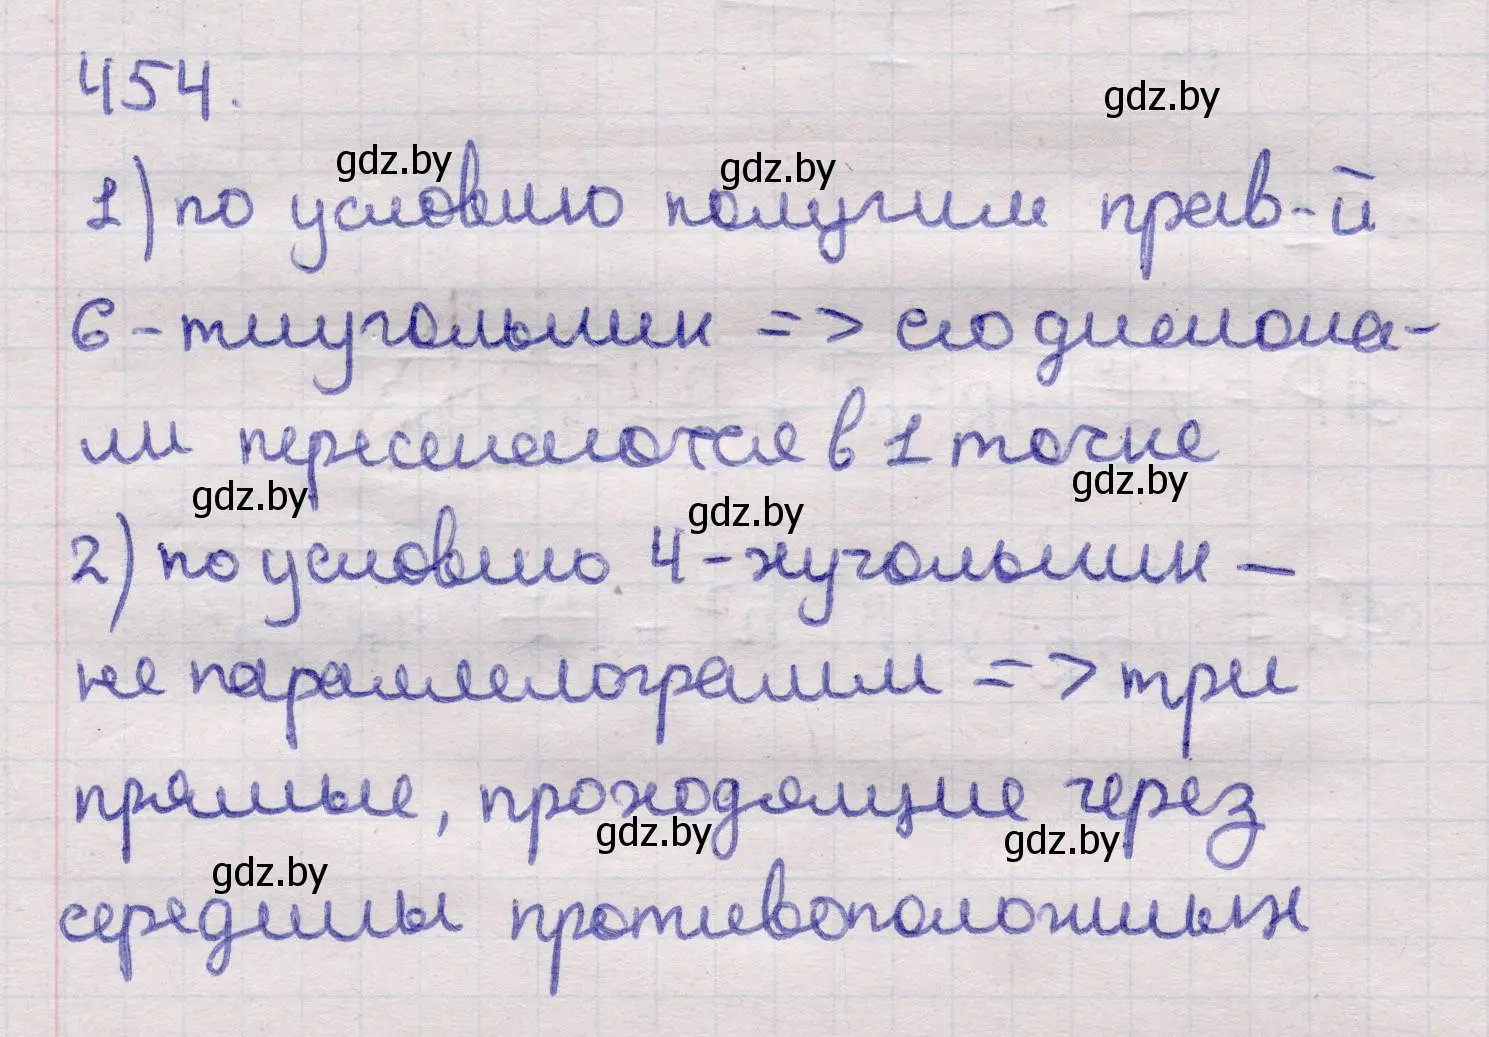 454.
gdz.by
gdz.by gdz.by
1) по условию получим прав-й
6-тиугольник => его диагона-
ли пересекаются в 1 точке
gdz.by gdz.by gdz.by
2) по условию 4-хугольник —
не параллелограмм => три
прямые, проходящие через
gdz.by gdz.by
gdz.by
середины противоположных